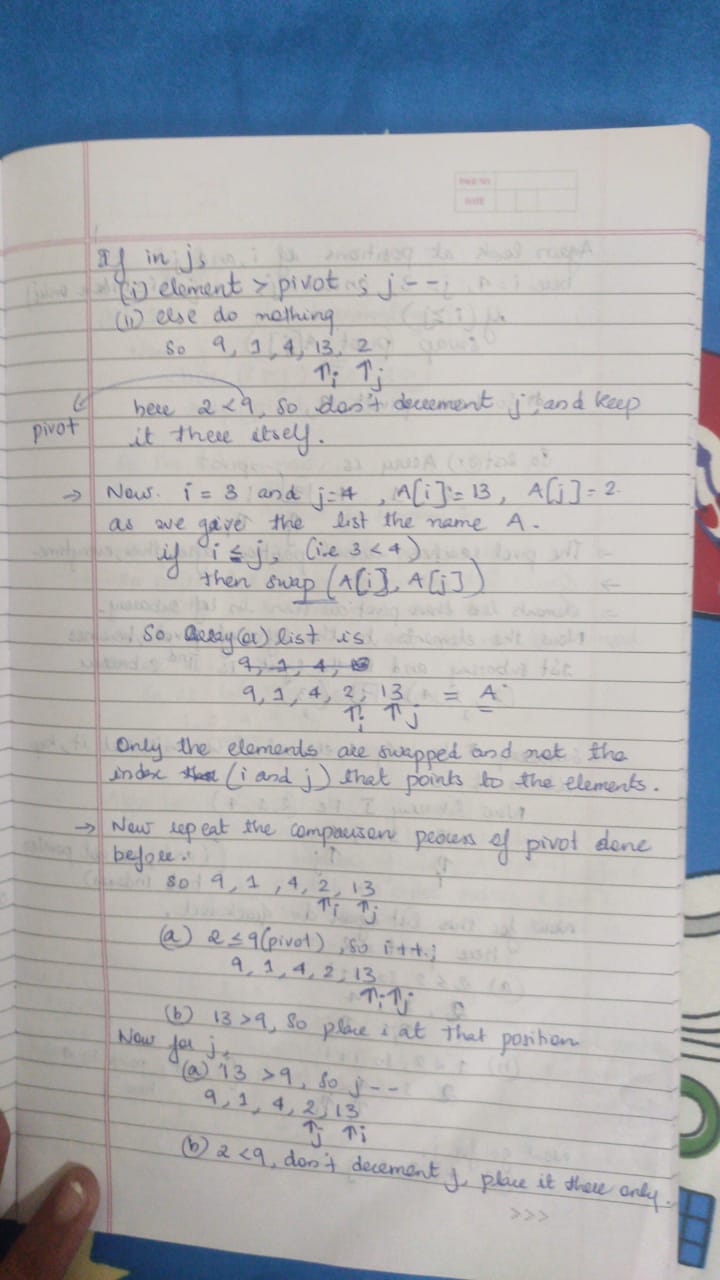 PAGE NO
DATE
If in j,
(i) element > pivot ; j--
(ii) else do nothing
So 9, 1, 4, 13, 2
↑i ↑j
pivot
here 2<9, so don't decrement j, and keep
it there itself.
→ Now. i = 3 and j=4 , A[i] = 13, A[j] = 2.
as we gave the list the name A.
if i ≤ j, (i.e 3<4)
then swap (A[i], A[j])
So Array(or) list is
9, 1, 4,
9, 1, 4, 2, 13 = A
↑i ↑j
Only the elements are swapped and not the
index (i and j) that points to the elements.
→ Now repeat the comparison process of pivot done
before.
so 9, 1, 4, 2, 13
↑i ↑j
(a) 2 ≤ 9(pivot), so i++;
9, 1, 4, 2, 13
↑i ↑j
(b) 13 >9, So place i at that position
Now for j,
(a) 13 >9, so j--
9, 1, 4, 2, 13
↑j ↑i
(b) 2 <9, don't decement j, place it there only.
>>>